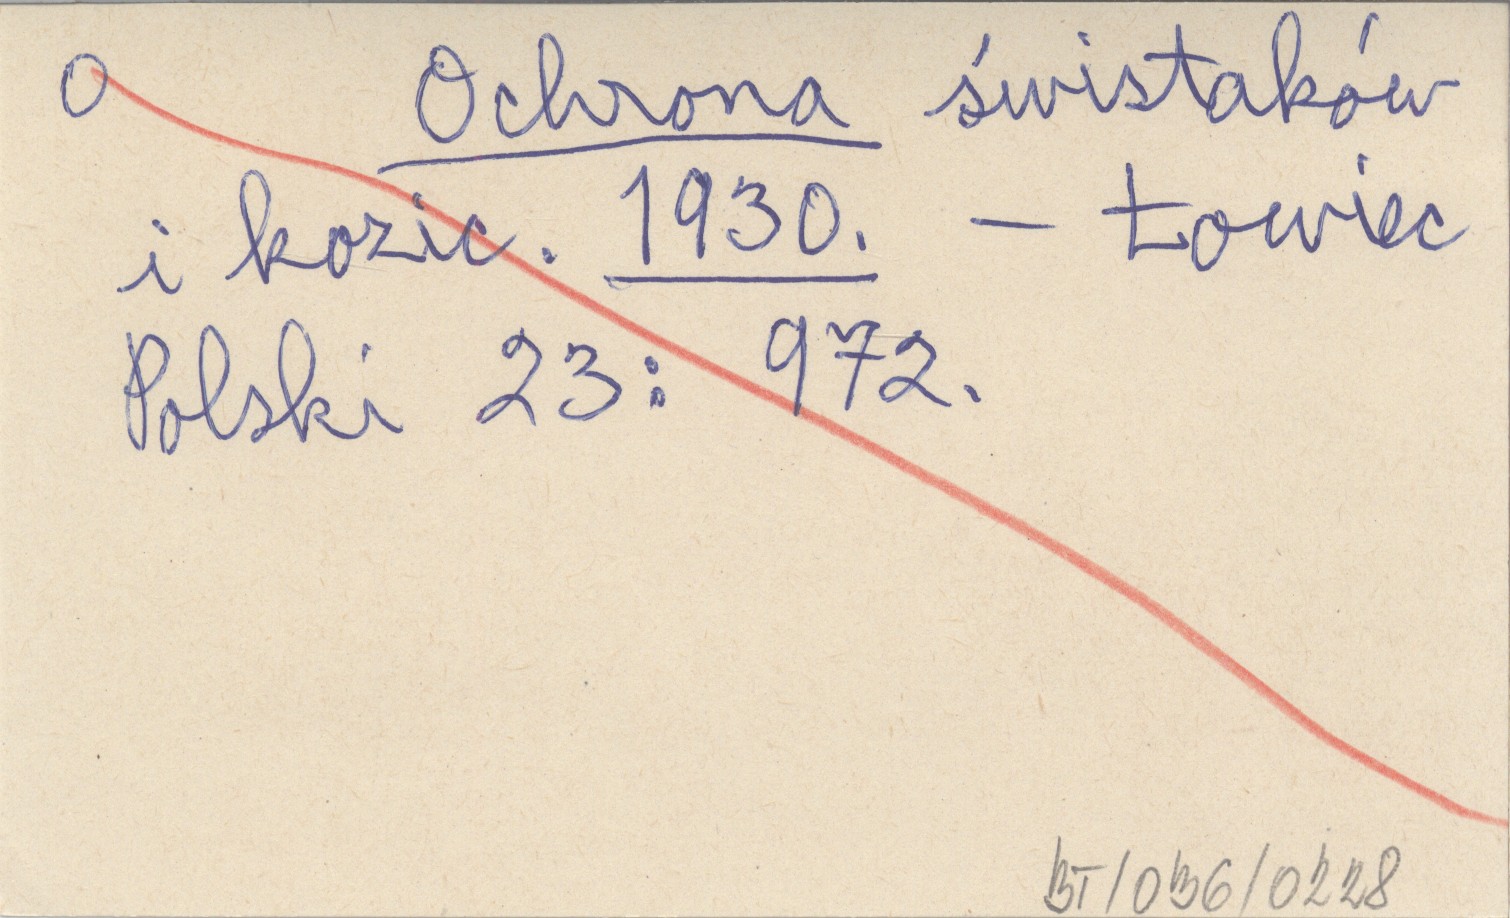 O Ochrona świstaków
i kozic. 1930. - Łowiec
Polski 23: 972.
BT/036/0228